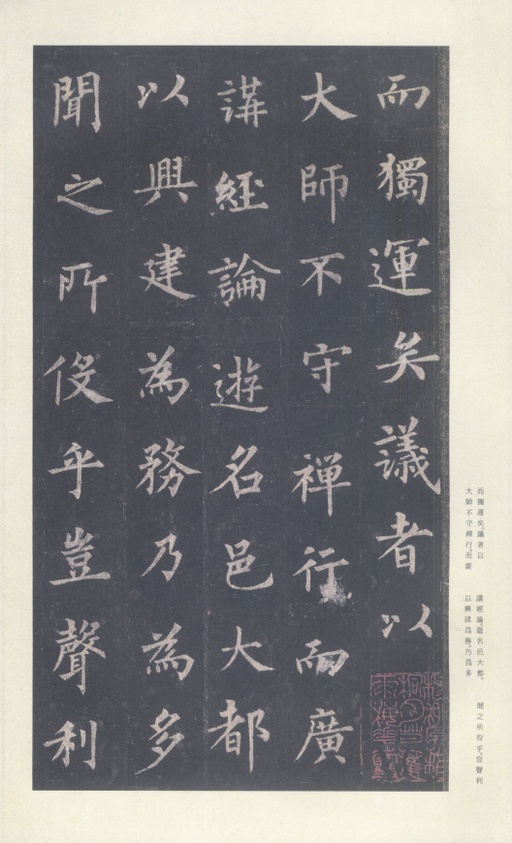 而獨運矣議者以
大師不守禪行而廣
講經論遊名邑大都
以興建為務乃為多
聞之所役乎豈聲利
而獨運矣。議者以
大師不守禪行。而廣
講經論。遊名邑大都。
以興建爲務。乃爲多
聞之所役乎。豈聲利